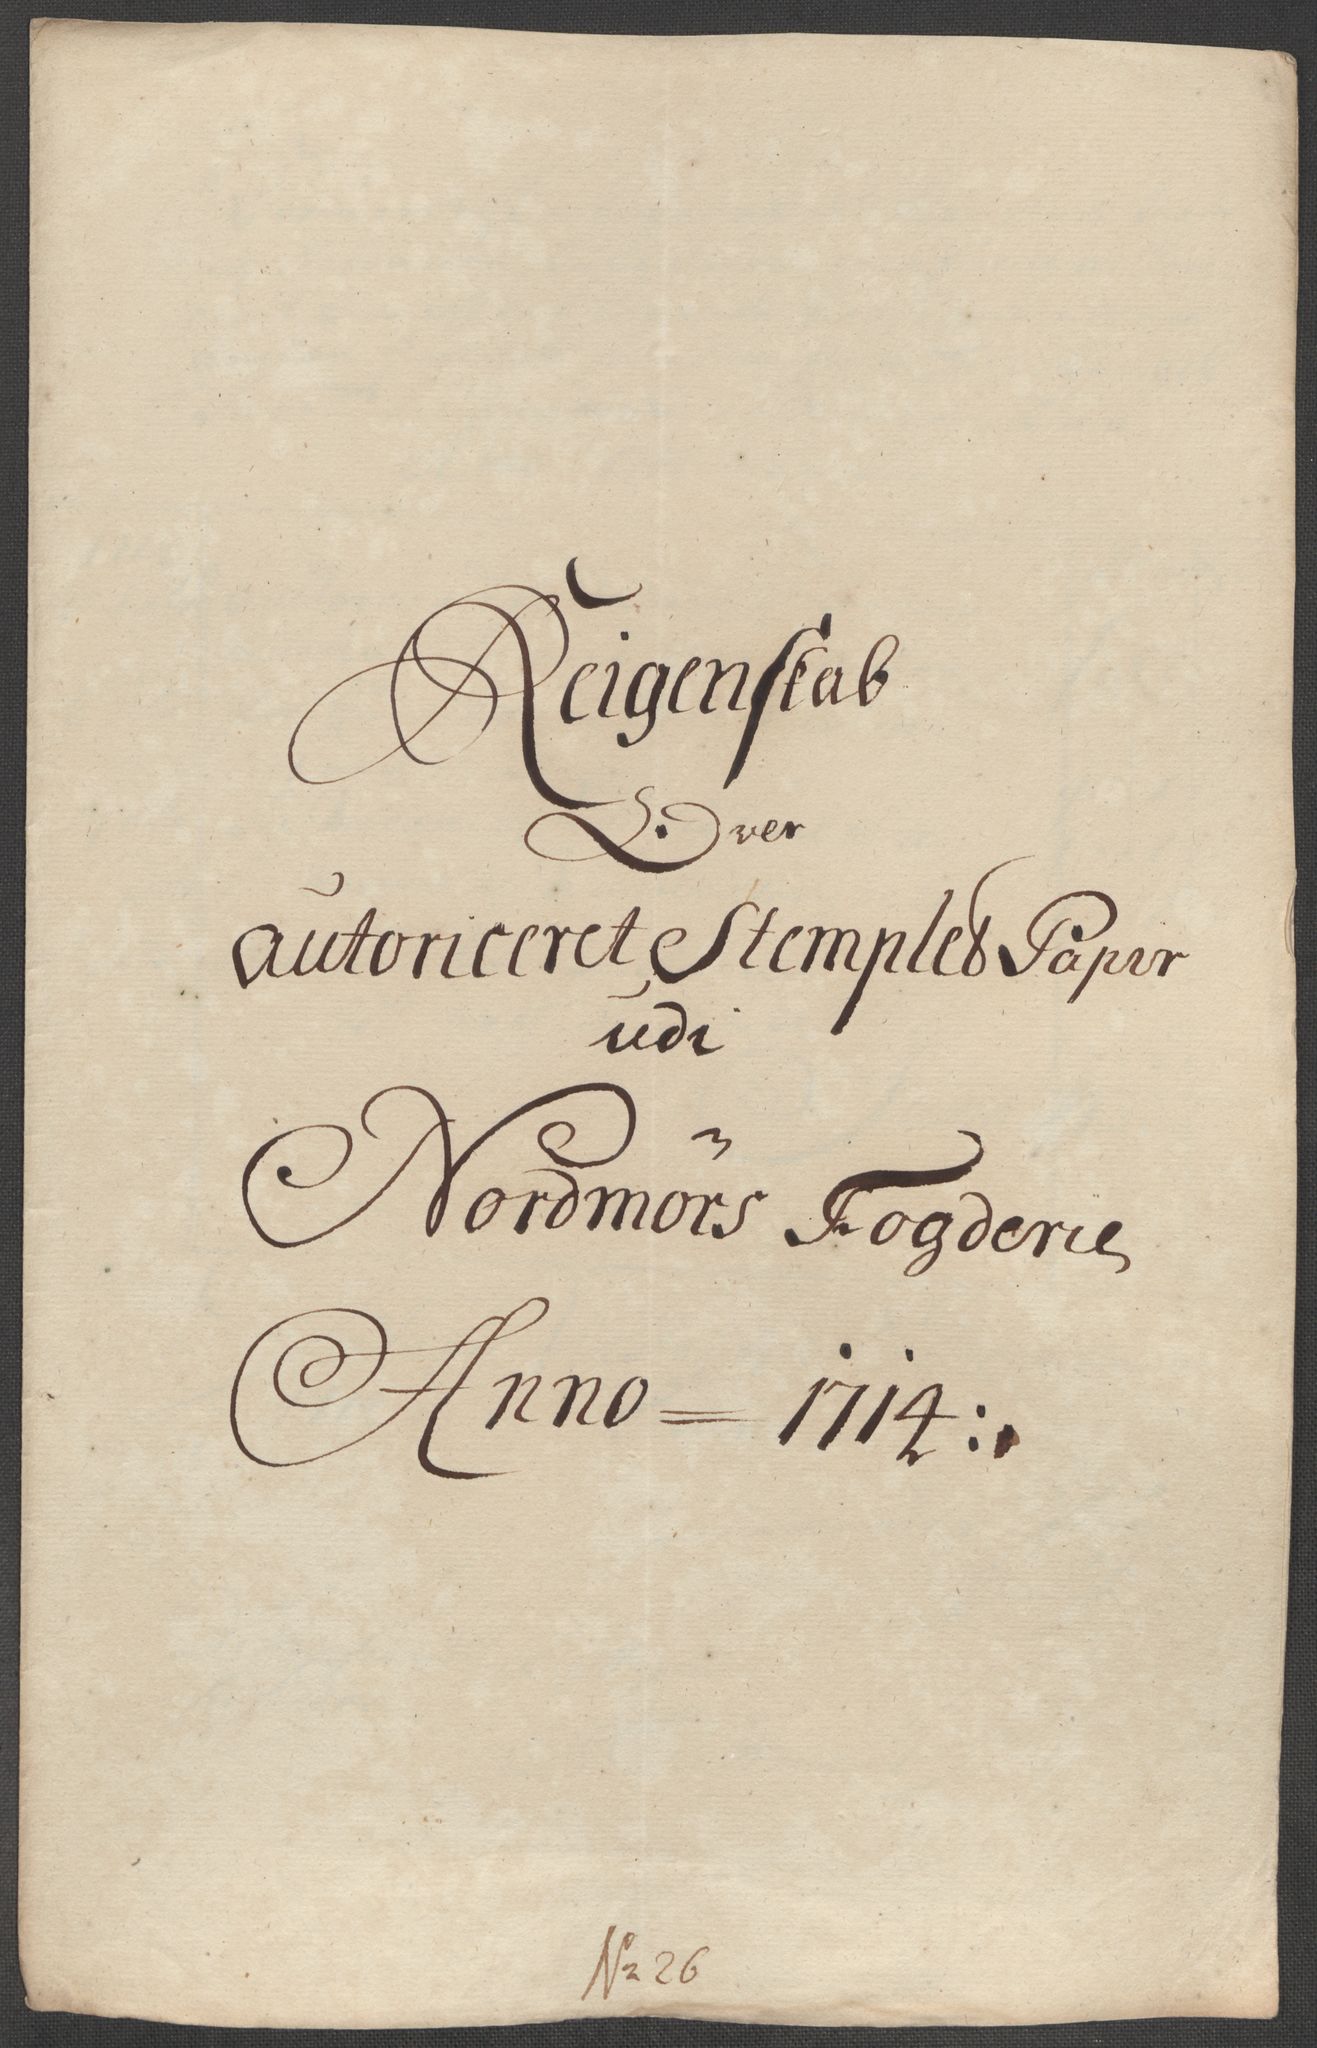 Reigenskab
Over
autoriceret Stempled Papir
udi
Nordmørs Fogderie
Anno = 1714:.
No 26